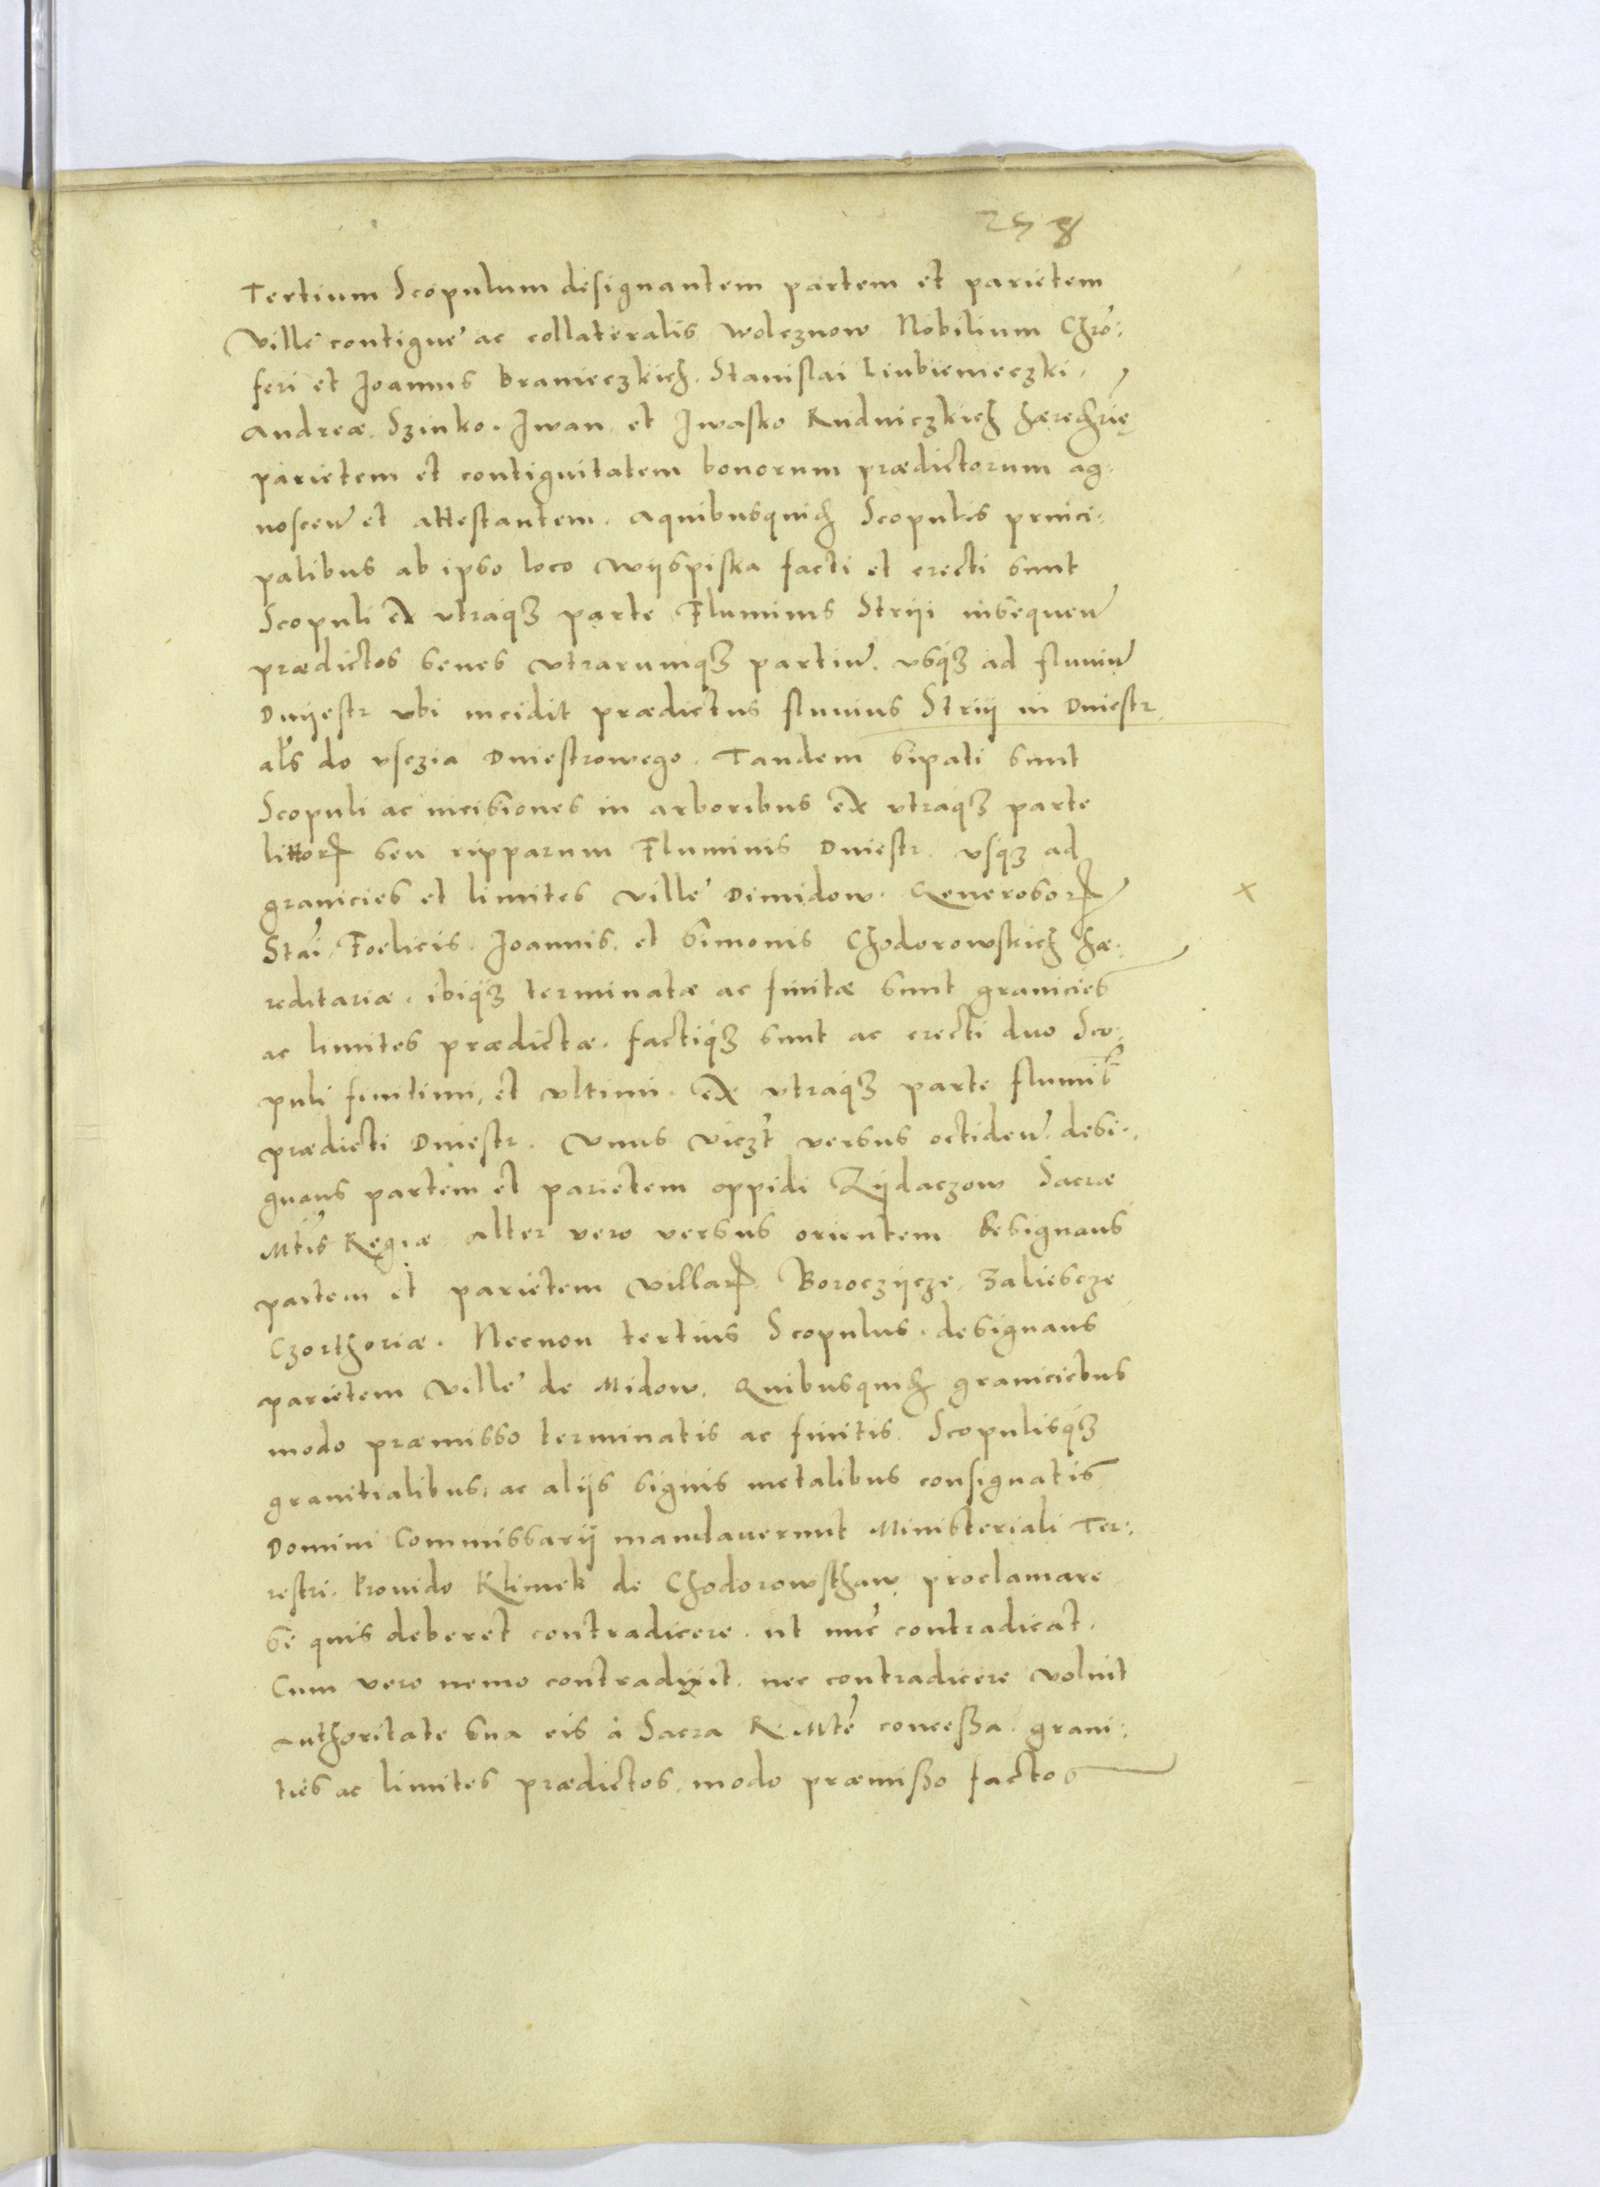 258
Tertium Scopulum designantem partem et parietem
Ville contigue ac collateralis Wolcznow Nobilium Chro:
feri et Joannis Branieczkich. Stanislai Liubienieczki.
Andreæ. Szinko. Jwan et Jwasko Rudniczkich
parietem et contiguitatem bonorum prædictorum ag:
noscen̄ et attestantem. Aquibusquid Scopulis princi:
palibus ab ipso loco Wyspiska facti et erecti sunt
Scopuli ex utraqꝫ parte Fluminis Stryi insequen̄
prædictos senes utrarumqꝫ partiū. usqꝫ ad fluuiū
Dnyestr ubi incidit prædictus fluuius Stryi in Dniestr.
al̄s do usczia Dniestrowego. Tandem sipati sunt
Scopuli ac incisiones in arboribus ex utraqꝫ parte
littorꝝ seu ripparum Fluminis Dniestr. usqꝫ ad
granicies et limites ville Dimidow. Generosorꝝ
Stāi. Foelicis. Joannis. et Simonis Chodorowskich hæ:
reditariæ. ibiqꝫ terminatæ ac finitæ sunt granicies
ac limites prædictæ. factiqꝫ sunt ac erecti duo Sco:
puli finitimi, et ultimi. ex utraqꝫ parte flumīs
prædicti Dniestr. Unus viczt versus octiden̄. desi:
gnans partem et parietem oppidi Zydaczow Sacræ
Mtīs Regiæ Alter vero versus orientem designans
partem et parietem Villarꝝ Boroczycze. Zaliescze
Czorthoriæ. Necnon tertius Scopulus. designans
parietem Ville de Midow. Quibusquid graniciebus
modo præmisso terminatis ac finitis. Scopulisqꝫ
granitialibus, ac alijs signis metalibus consignatis
Domini Commissarij mandauerunt Ministeriali Ter:
restri. Prouido Klimek de Chodorowsthaw proclamare
si quis deberet contradicere. ut nūc contradicat.
Cum vero nemo contradixit. nec contradicere voluit
authoritate sua eis à Sacra R. Mtē conceßa. grani:
ties ac limites prædictos. modo præmißo factos